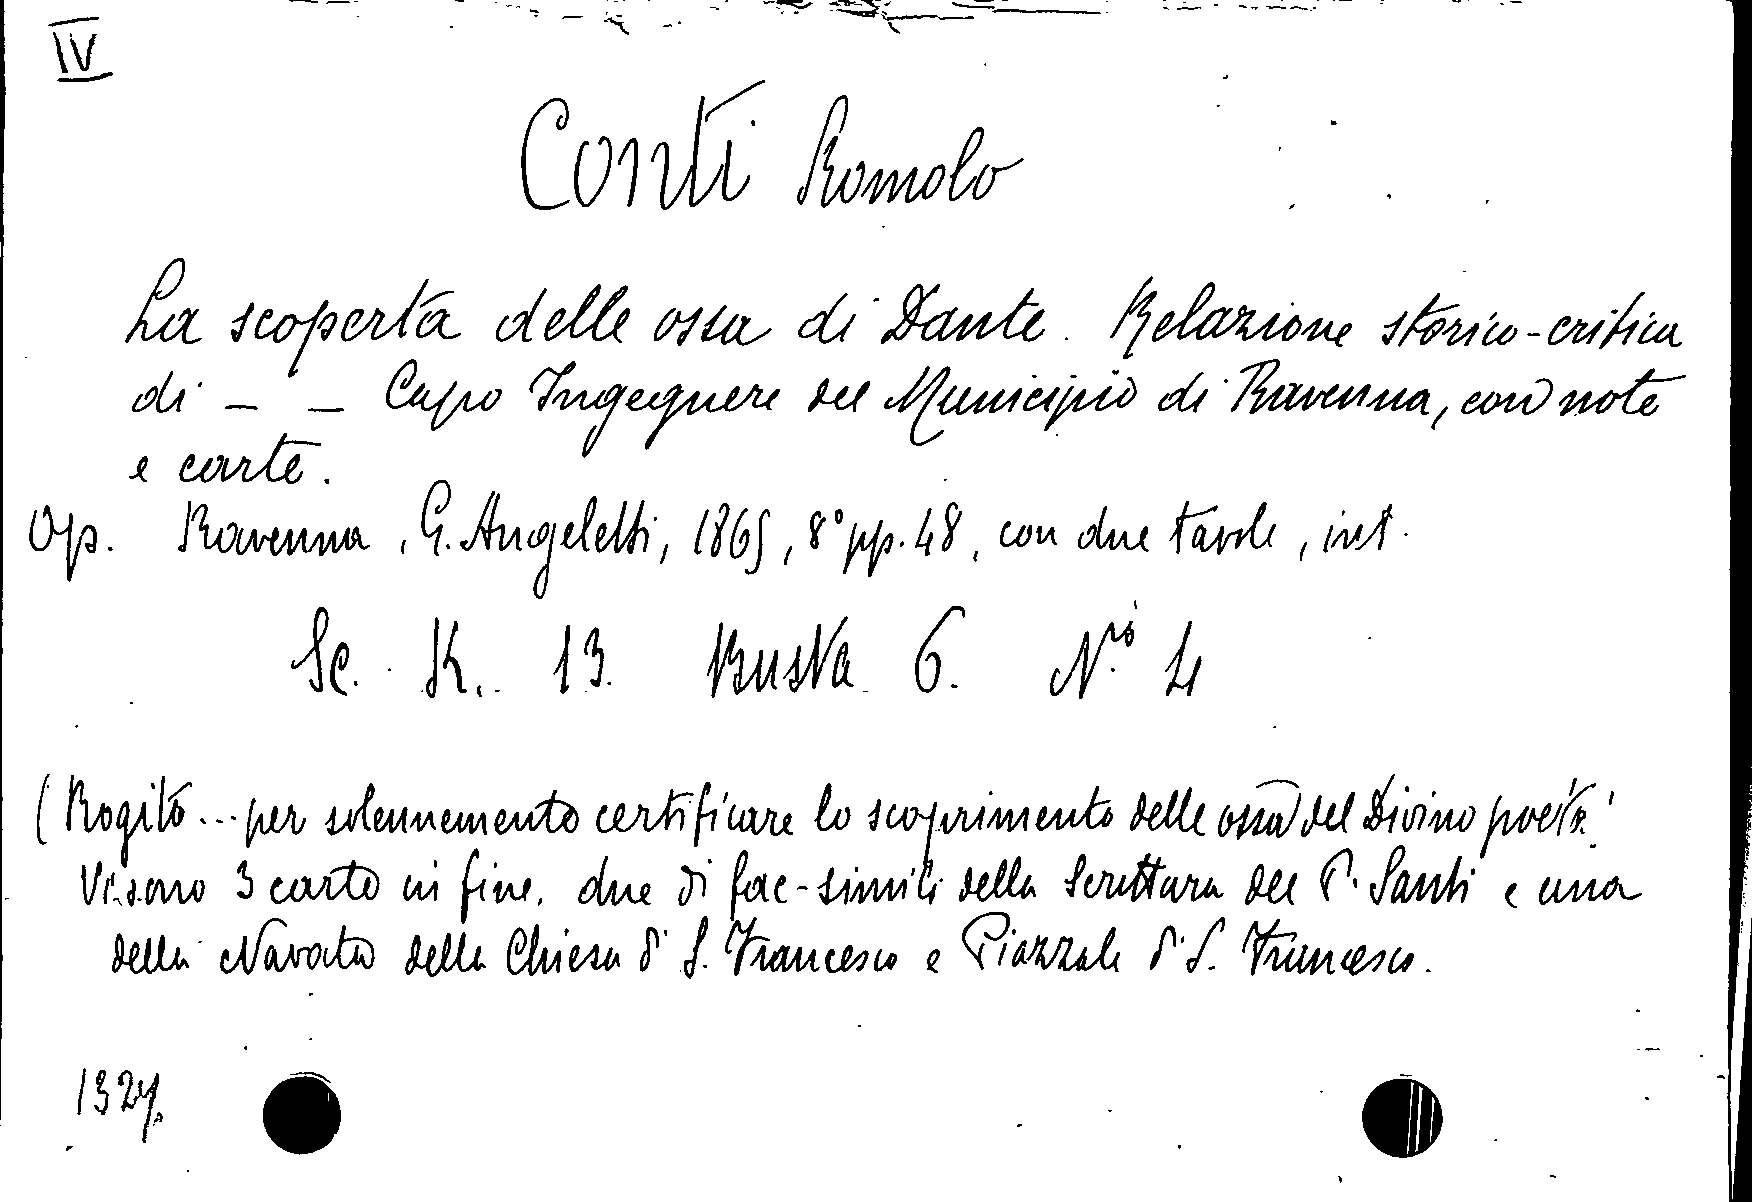 IV
Conti Romolo
La scoperta delle ossa di Dante. Relazione storico-critica
di _ _ Capo Ingegnere del Municipio di Ravenna, con note
e carte.
Op. Ravenna, G. Angeletti, 1865, 8° pp. 48, con due tavole, int.
Sc. K. 13. Busta 6. N.ro 4
(Rogito... per solennemente certificare lo scoprimento delle ossa del Divino poeta.
Vi sono 3 carte in fine. due di fac-simili della Scrittura del P. Santi e una
della Navata della Chiesa di S. Francesco e Piazzale di S. Francesco.